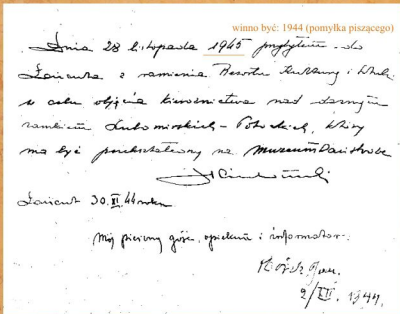 winno być: 1944 (pomyłka piszącego)
Dnia 28 listopada 1945 przybyłem do
Łańcuta z ramienia Resortu Kultury i Sztuki
w celu objęcia kierownictwa nad dawnym
zamkiem Lubomirskich - Potockich, który
ma być przekształcony na muzeum Państwowe
Łańcut 30.XI.44 roku
Mój pierwszy gość, opiekun i informator.
2/XII. 1944.